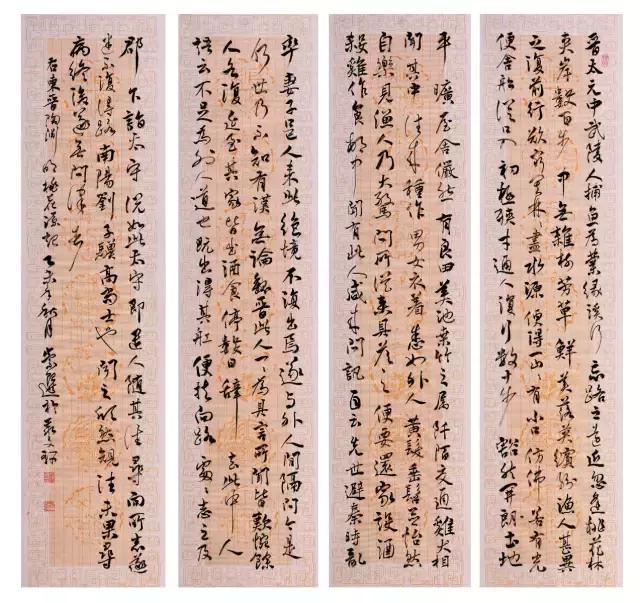 晋太元中武陵人捕魚為業缘溪行忘路之遠近忽逢桃花林
夹岸數百步中無雜樹芳草鮮美落英缤纷漁人甚異
之復前行欲窮其林盡水源便得一山有小口仿佛若有光
便舍船從口入初極狹才通人復行數十步豁然开朗土地
平曠屋舍儼然有良田美池桑竹之屬阡陌交通雞犬相
聞其中往來種作男女衣着悉如外人黃髮垂髫並怡然
自樂見漁人乃大驚問所從來具答之便要還家設酒
殺雞作食村中聞有此人咸來問訊自云先世避秦時亂
率妻子邑人來此絕境不復出焉遂与外人間隔問今是
何世乃不知有漢無論魏晋此人一一為具言所聞皆歎惋餘
人各復延至其家皆出酒食停數日辭去此中人
語云不足為外人道也既出得其船便扶向路處々志之及
郡下詣太守說如此太守即遣人随其往尋向所志遂
迷不復得路南陽劉子驥高尚士也聞之欣然規往未果尋
病終後遂無問津者
右東晋陶淵明桃花源記乙未年月